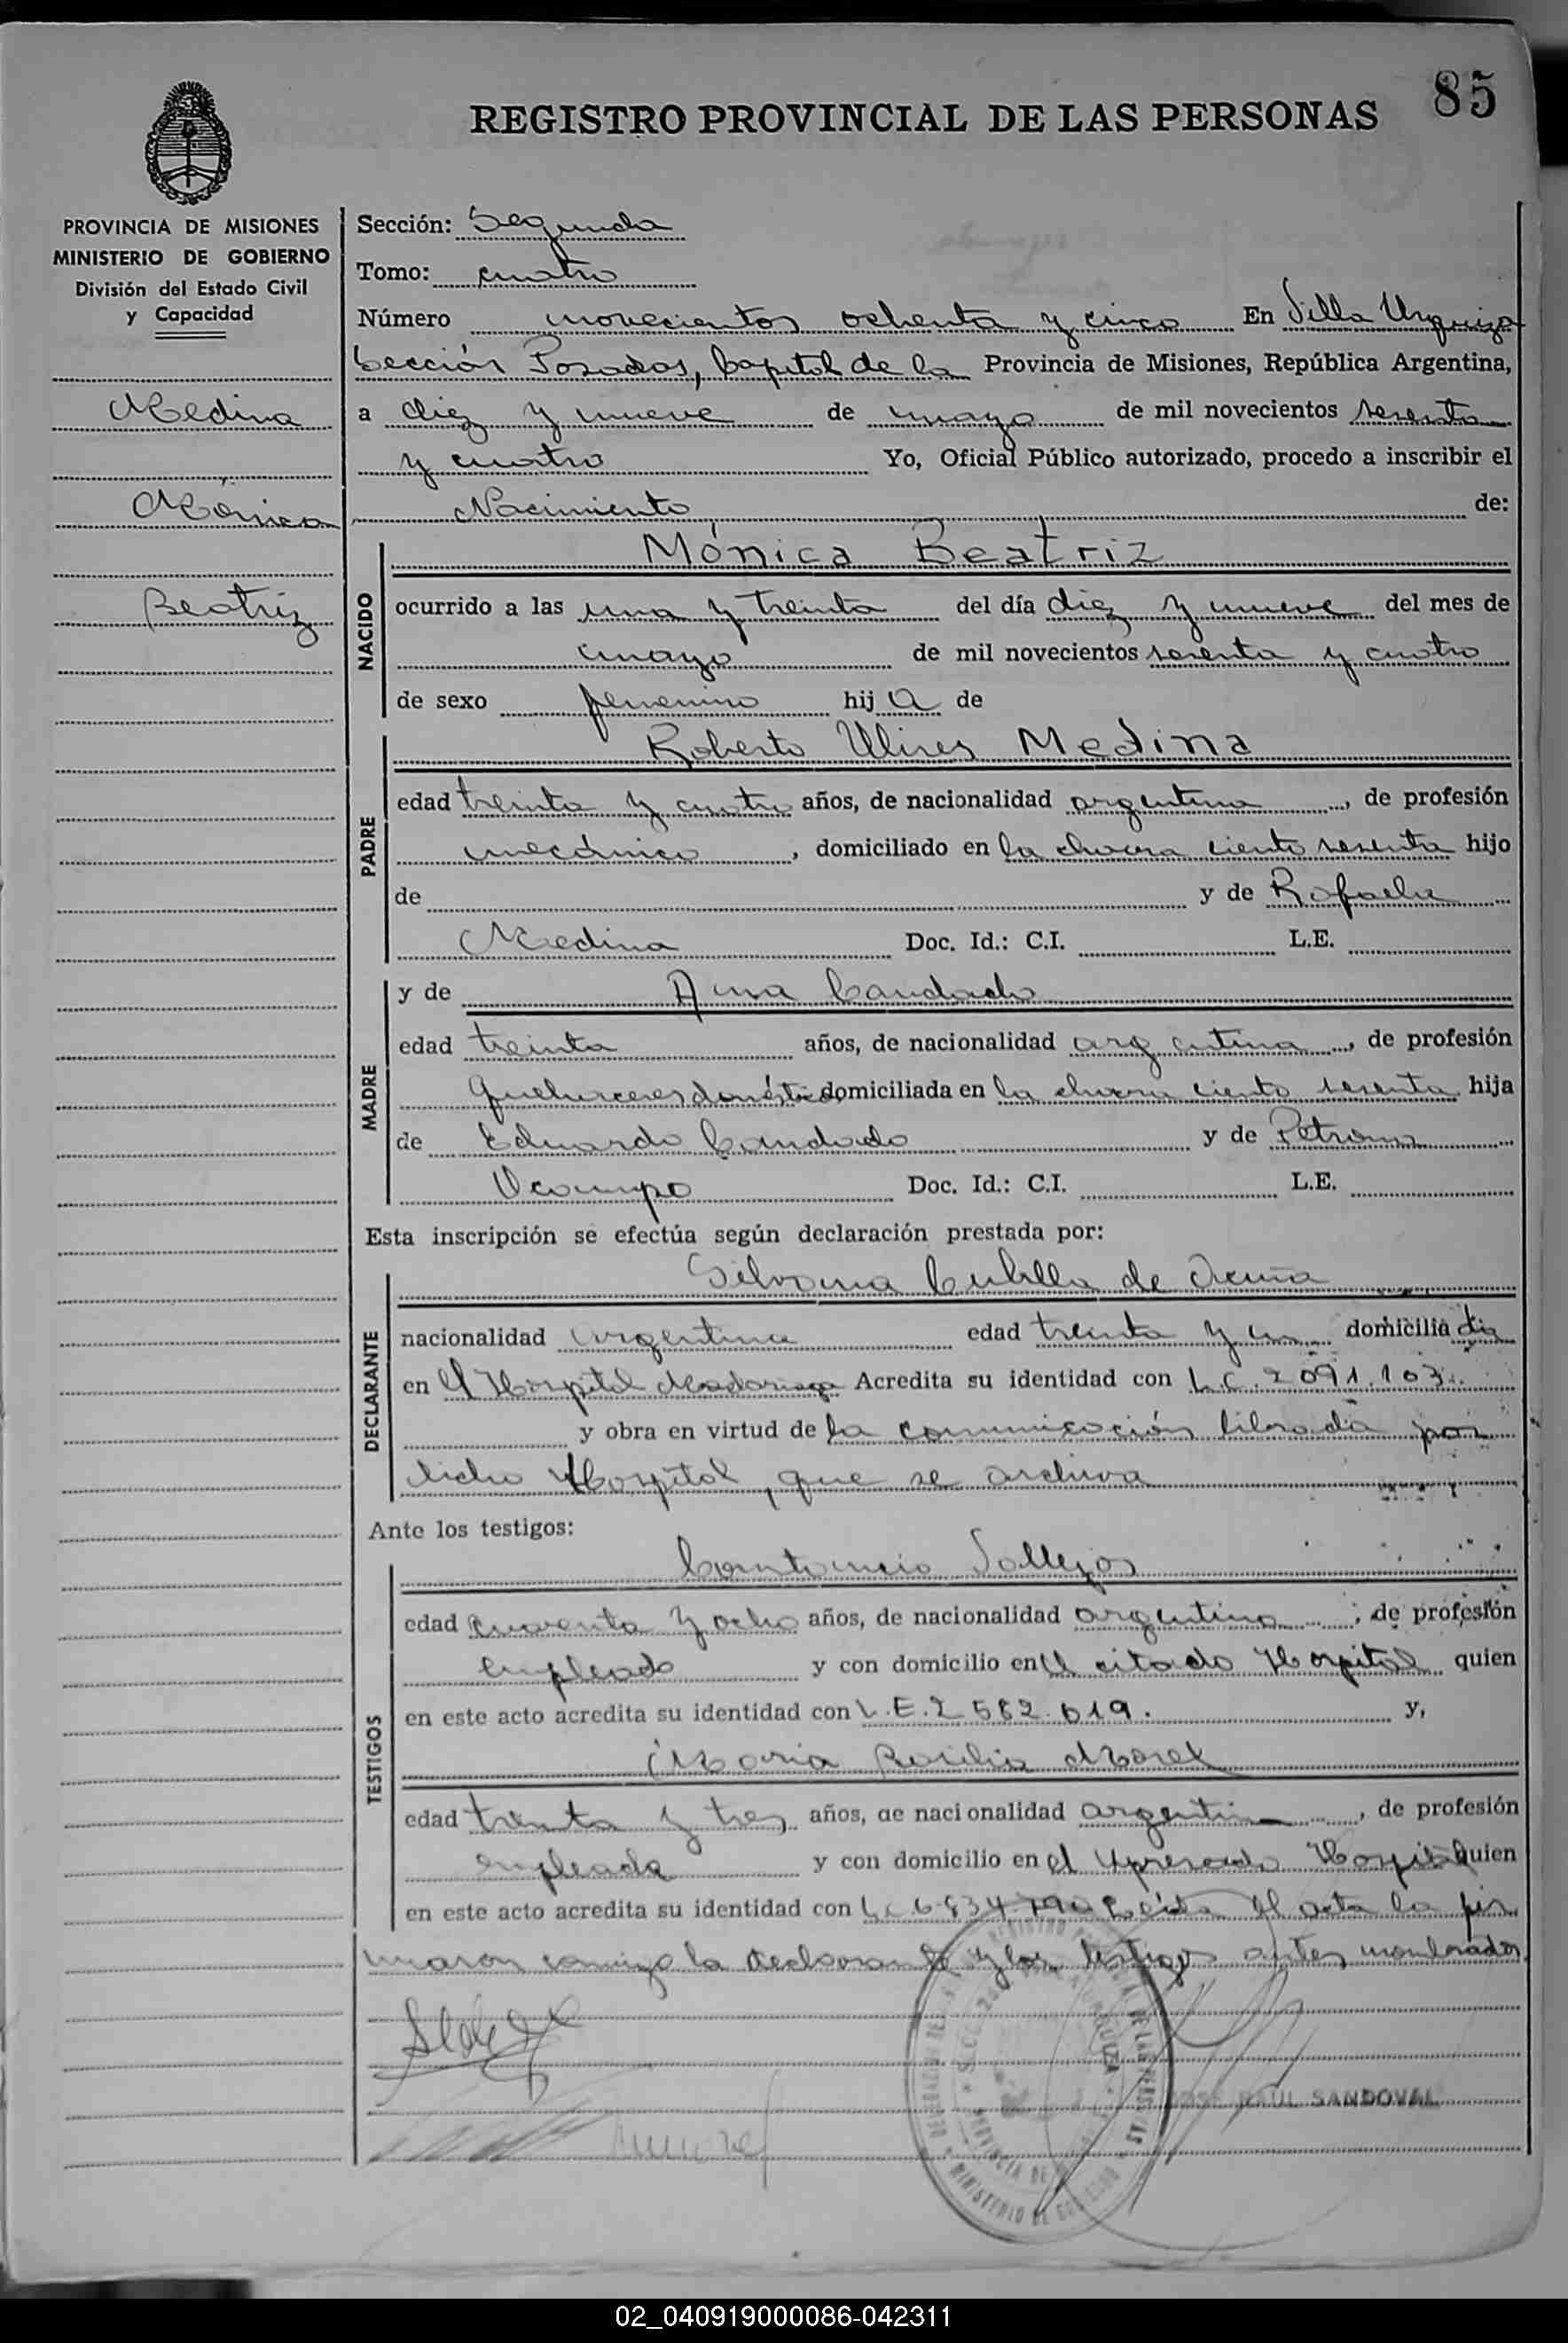 85
REGISTRO PROVINCIAL DE LAS PERSONAS
PROVINCIA DE MISIONES
MINISTERIO DE GOBIERNO
División del Estado Civil
y Capacidad
Medina
Mónica
Beatriz
Sección: Segunda
Tomo: cuatro
Número novecientos ochenta y cinco En Villa Urquiza
Sección Posadas, Capital de la Provincia de Misiones, República Argentina,
a diez y nueve de mayo de mil novecientos sesenta
y cuatro Yo, Oficial Público autorizado, procedo a inscribir el
Nacimiento de:
NACIDO
Mónica Beatriz
ocurrido a las una y treinta del día diez y nueve del mes de
mayo de mil novecientos sesenta y cuatro
de sexo femenino hij a de
PADRE
Roberto Ulises Medina
edad treinta y cuatro años, de nacionalidad argentina, de profesión
mecánico, domiciliado en la chacra ciento sesenta hijo
de y de Rafaela
Medina Doc. Id.: C.I. L.E.
MADRE
y de Ana Candado
edad treinta años, de nacionalidad argentina, de profesión
Quehaceres domésticos domiciliada en la chacra ciento sesenta hija
de Eduardo Candado y de Petrona
Ocampo Doc. Id.: C.I. L.E.
Esta inscripción se efectúa según declaración prestada por:
DECLARANTE
Silvana Cubilla de Acuña
nacionalidad argentina edad treinta y un domicilia da
en el Hospital Madariaga Acredita su identidad con L.C. 2.091.103.
y obra en virtud de la comunicación librada por
dicho Hospital, que se archiva
Ante los testigos:
TESTIGOS
Vallejos
edad cuarenta y ocho años, de nacionalidad argentina, de profesión
empleado y con domicilio en el citado Hospital quien
en este acto acredita su identidad con L.E. 2.582.619. y,
María Morel
edad treinta y tres años, de nacionalidad argentina, de profesión
empleada y con domicilio en el expresado Hospital quien
en este acto acredita su identidad con L.C. 6.834.790 Leída el acta la fir
maron conmigo la declarante y los testigos antes nombrados
JOSE RAUL SANDOVAL
02_040919000086-042311